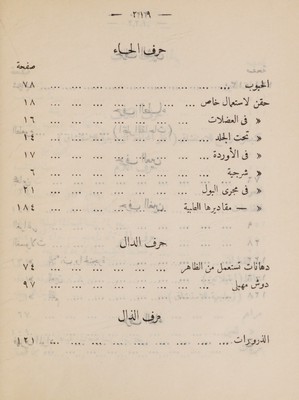 — ٢١٩ —
حرف الحاء
صفحة
الحبوب ... ... ... ... ... ... ... ... ٧٨
حقن لاستعمال خاص ... ... ... ... ... ... ١٨
» فى العضلات ... ... ... ... ... ... ١٦
» تحت الجلد ... ... ... ... ... ... ١٤
» فى الأوردة ... ... ... ... ... ... ١٧
» شرجية ... ... ... ... ... ... ٦
» فى مجرى البول ... ... ... ... ... ... ٢١
» — مقاديرها الطبية ... ... ... ... ... ١٨٤
حرف الدال
دهانات تستعمل من الظاهر ... ... ... ... ... ٧٤
دوش مهبلى ... ... ... ... ... ... ... ٩٧
حرف الذال
الذرورات ... ... ... ... ... ... ... ١٢١